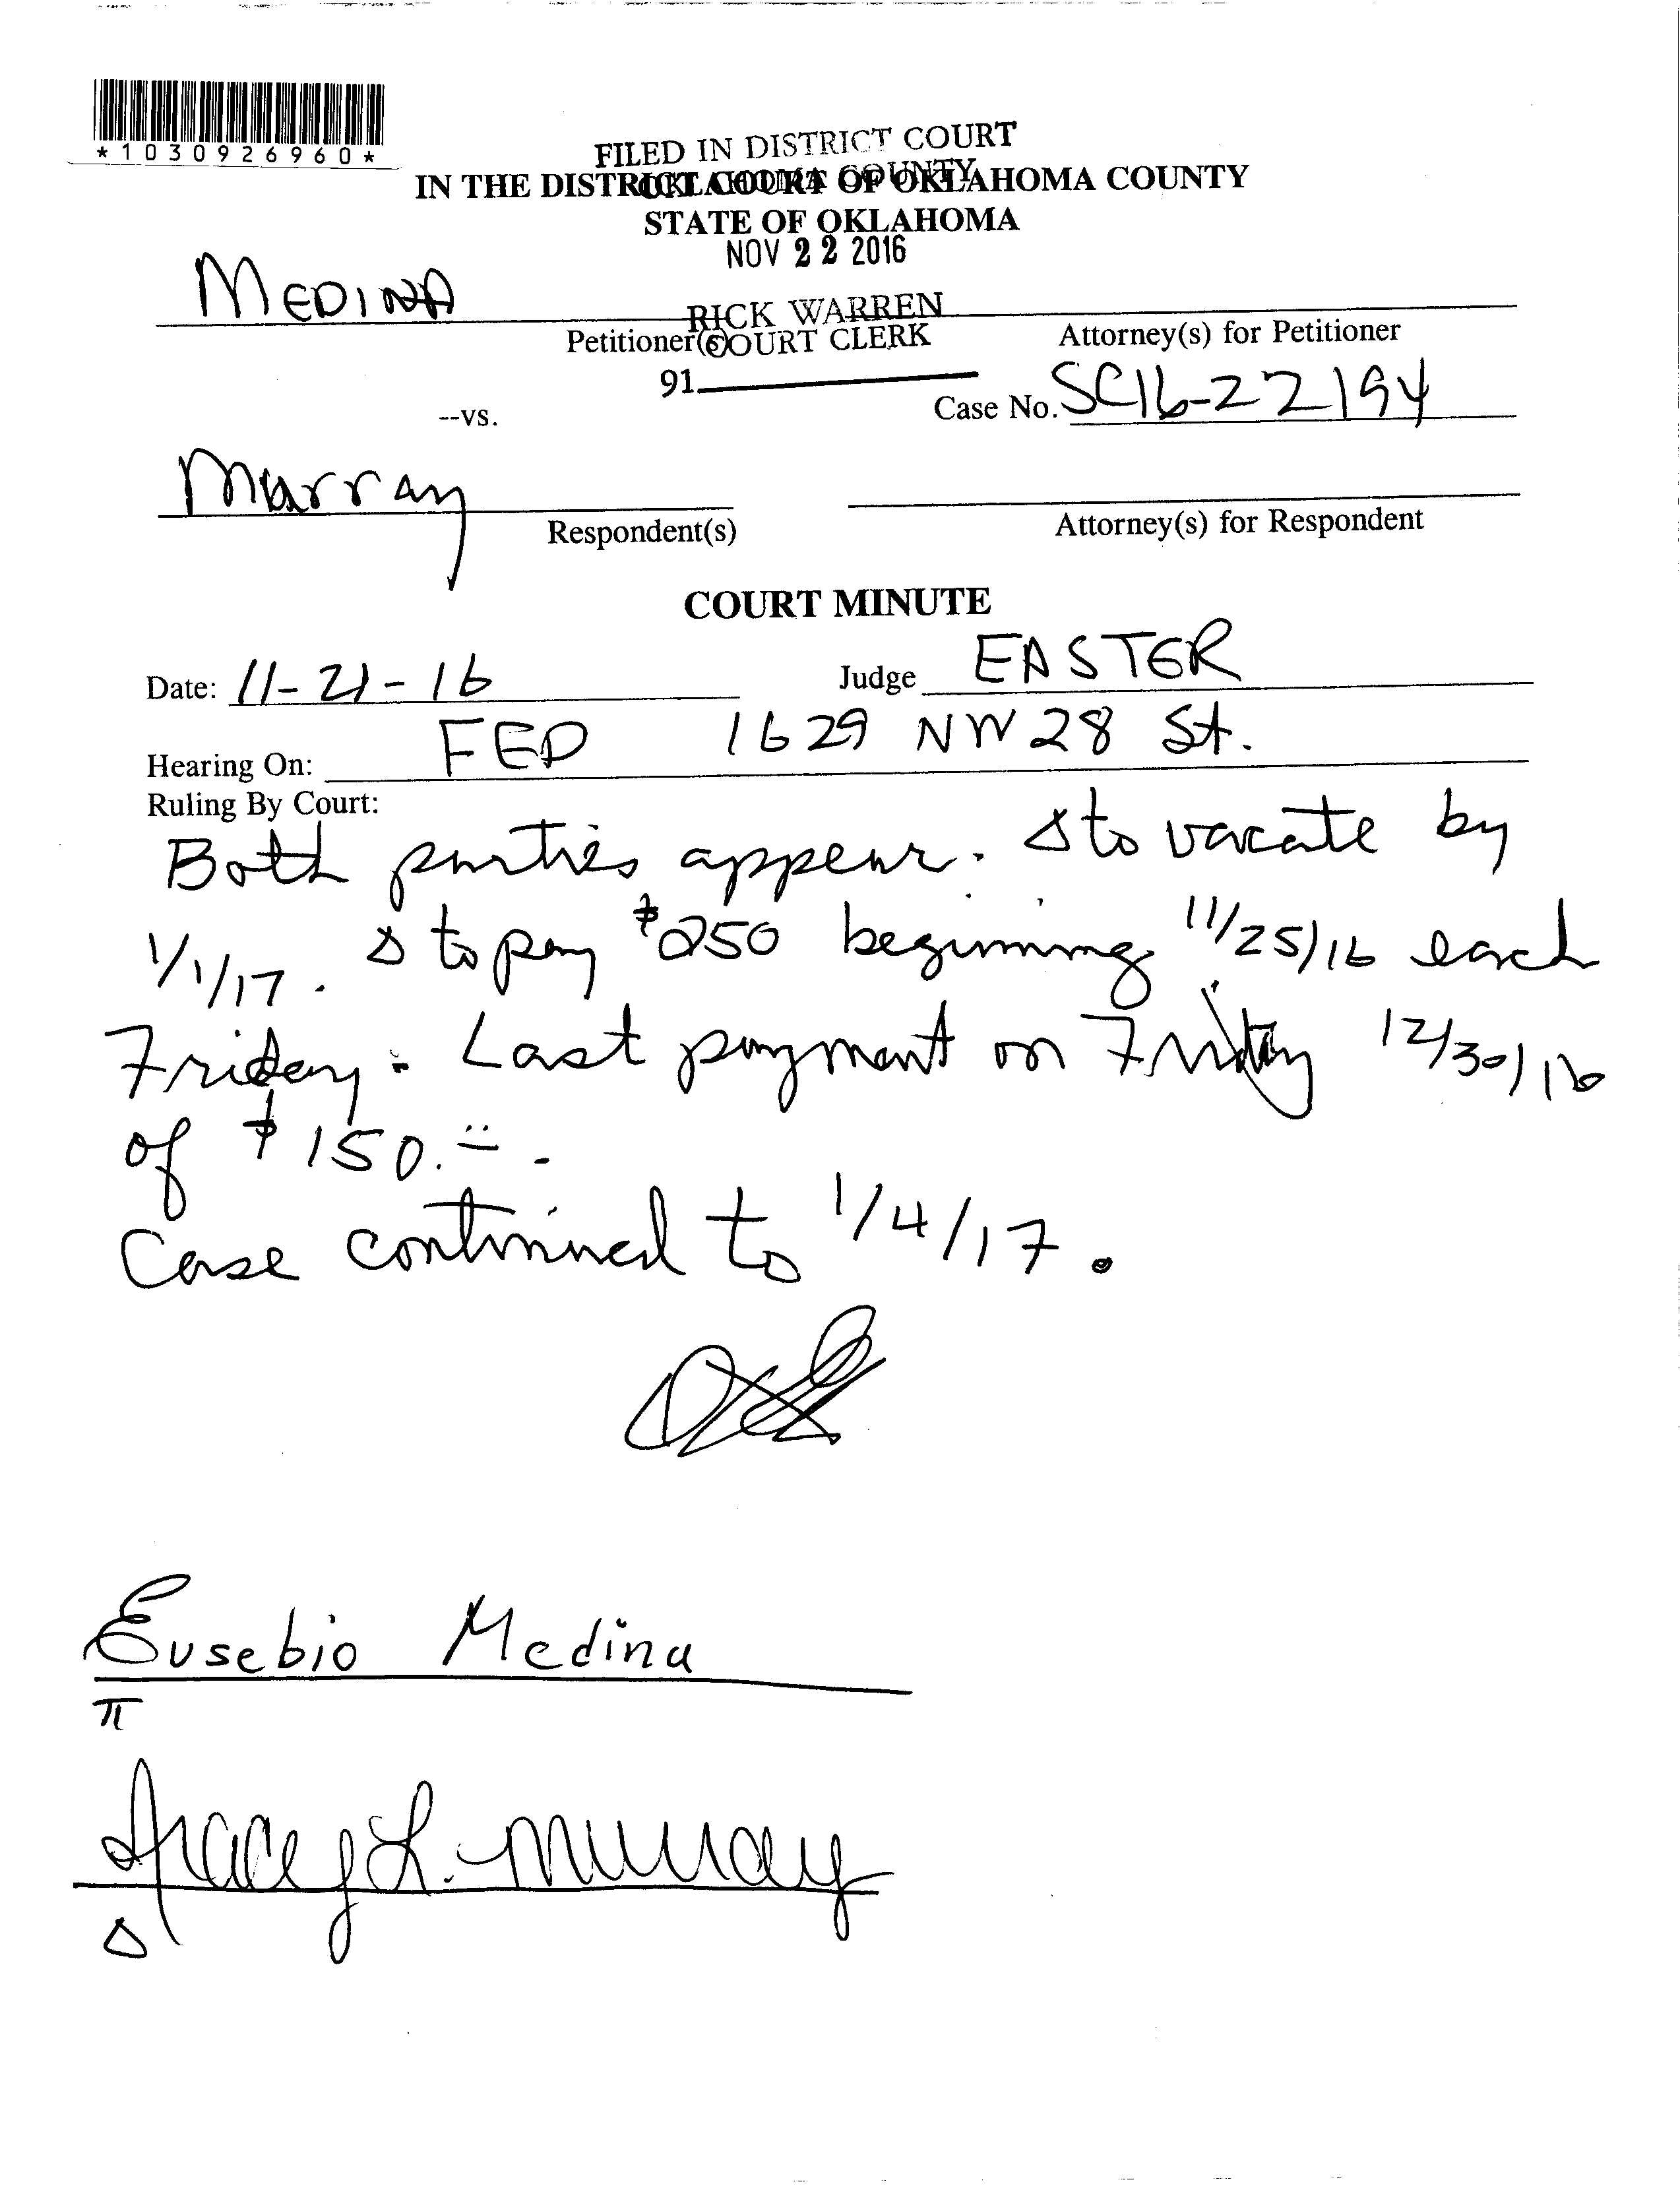 *1030926960*
FILED IN DISTRICT COURT
OKLAHOMA COUNTY
IN THE DISTRICT COURT OF OKLAHOMA COUNTY
STATE OF OKLAHOMA
NOV 22 2016
MEDINA
RICK WARREN
Petitioner(s) COURT CLERK Attorney(s) for Petitioner
91
--vs. Case No. SC16-22194
Murray
Respondent(s) Attorney(s) for Respondent
COURT MINUTE
Date: 11-21-16 Judge EASTER
Hearing On: FED 1629 NW 28 St.
Ruling By Court:
Both parties appear. Δ to vacate by
1/1/17. Δ to pay $250 beginning 11/25/16 each
Friday. Last payment on Friday 12/30/16
of $150.=.
Case continued to 1/4/17.
Eusebio Medina
π
Tracey L. Murray
Δ